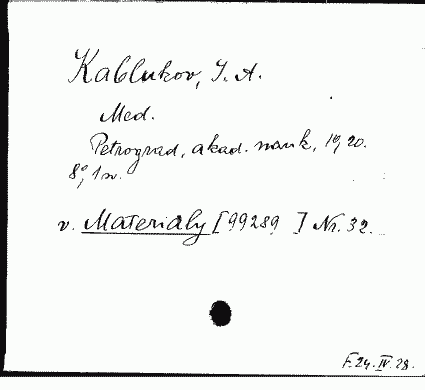 Kablukov, I. A.
Med.
Petrograd, akad. nauk, 1920.
8°, 1 sv.
v. Materialy [99289 ] Nr. 32.
F. 24. IV. 28.